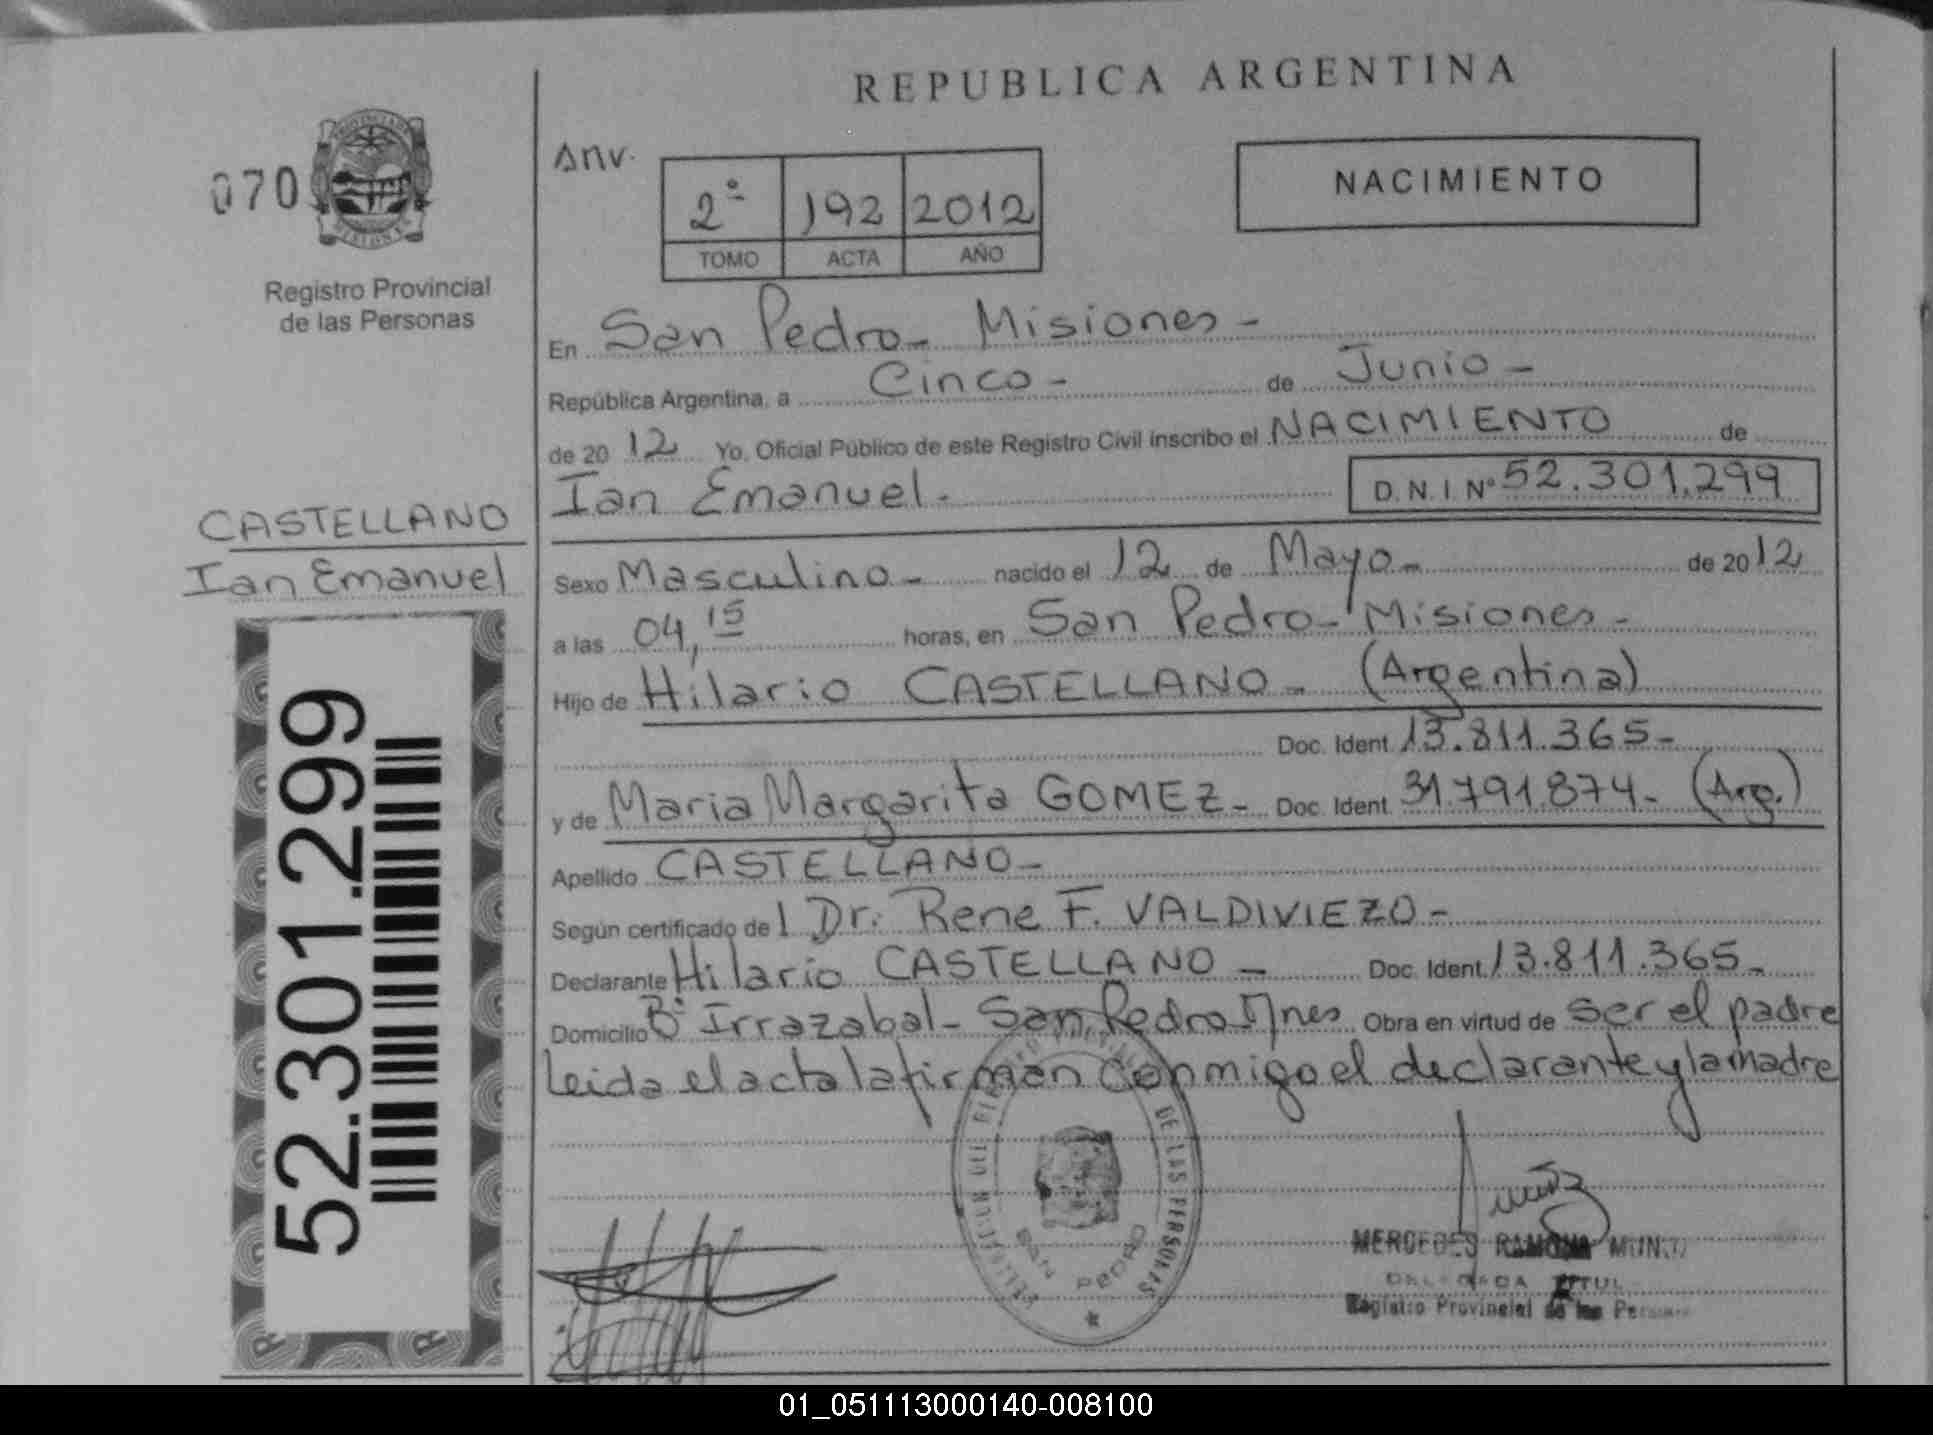 REPUBLICA ARGENTINA
070
Registro Provincial
de las Personas
Anv.
2º 192 2012
TOMO ACTA AÑO
NACIMIENTO
En San Pedro - Misiones -
República Argentina, a Cinco - de Junio -
de 2012 Yo, Oficial Público de este Registro Civil inscribo el NACIMIENTO de
Ian Emanuel. D.N.I. Nº 52.301.299
CASTELLANO
Ian Emanuel
52.301.299
Sexo Masculino - nacido el 12 de Mayo - de 2012
a las 04,15 horas, en San Pedro - Misiones -
Hijo de Hilario CASTELLANO - (Argentina)
Doc. Ident. 13.811.365 -
y de Maria Margarita GOMEZ - Doc. Ident. 31.791.874 - (Arg.)
Apellido CASTELLANO -
Según certificado de l Dr. Rene F. VALDIVIEZO -
Declarante Hilario CASTELLANO - Doc. Ident. 13.811.365 -
Domicilio Bº Irrazabal - San Pedro Mnes Obra en virtud de ser el padre
Leida el acta la firman conmigo el declarante y la madre
DE LAS PERSONAS
SAN PEDRO
MERCEDES RAMONA
Registro Provincial de las
01_051113000140-008100